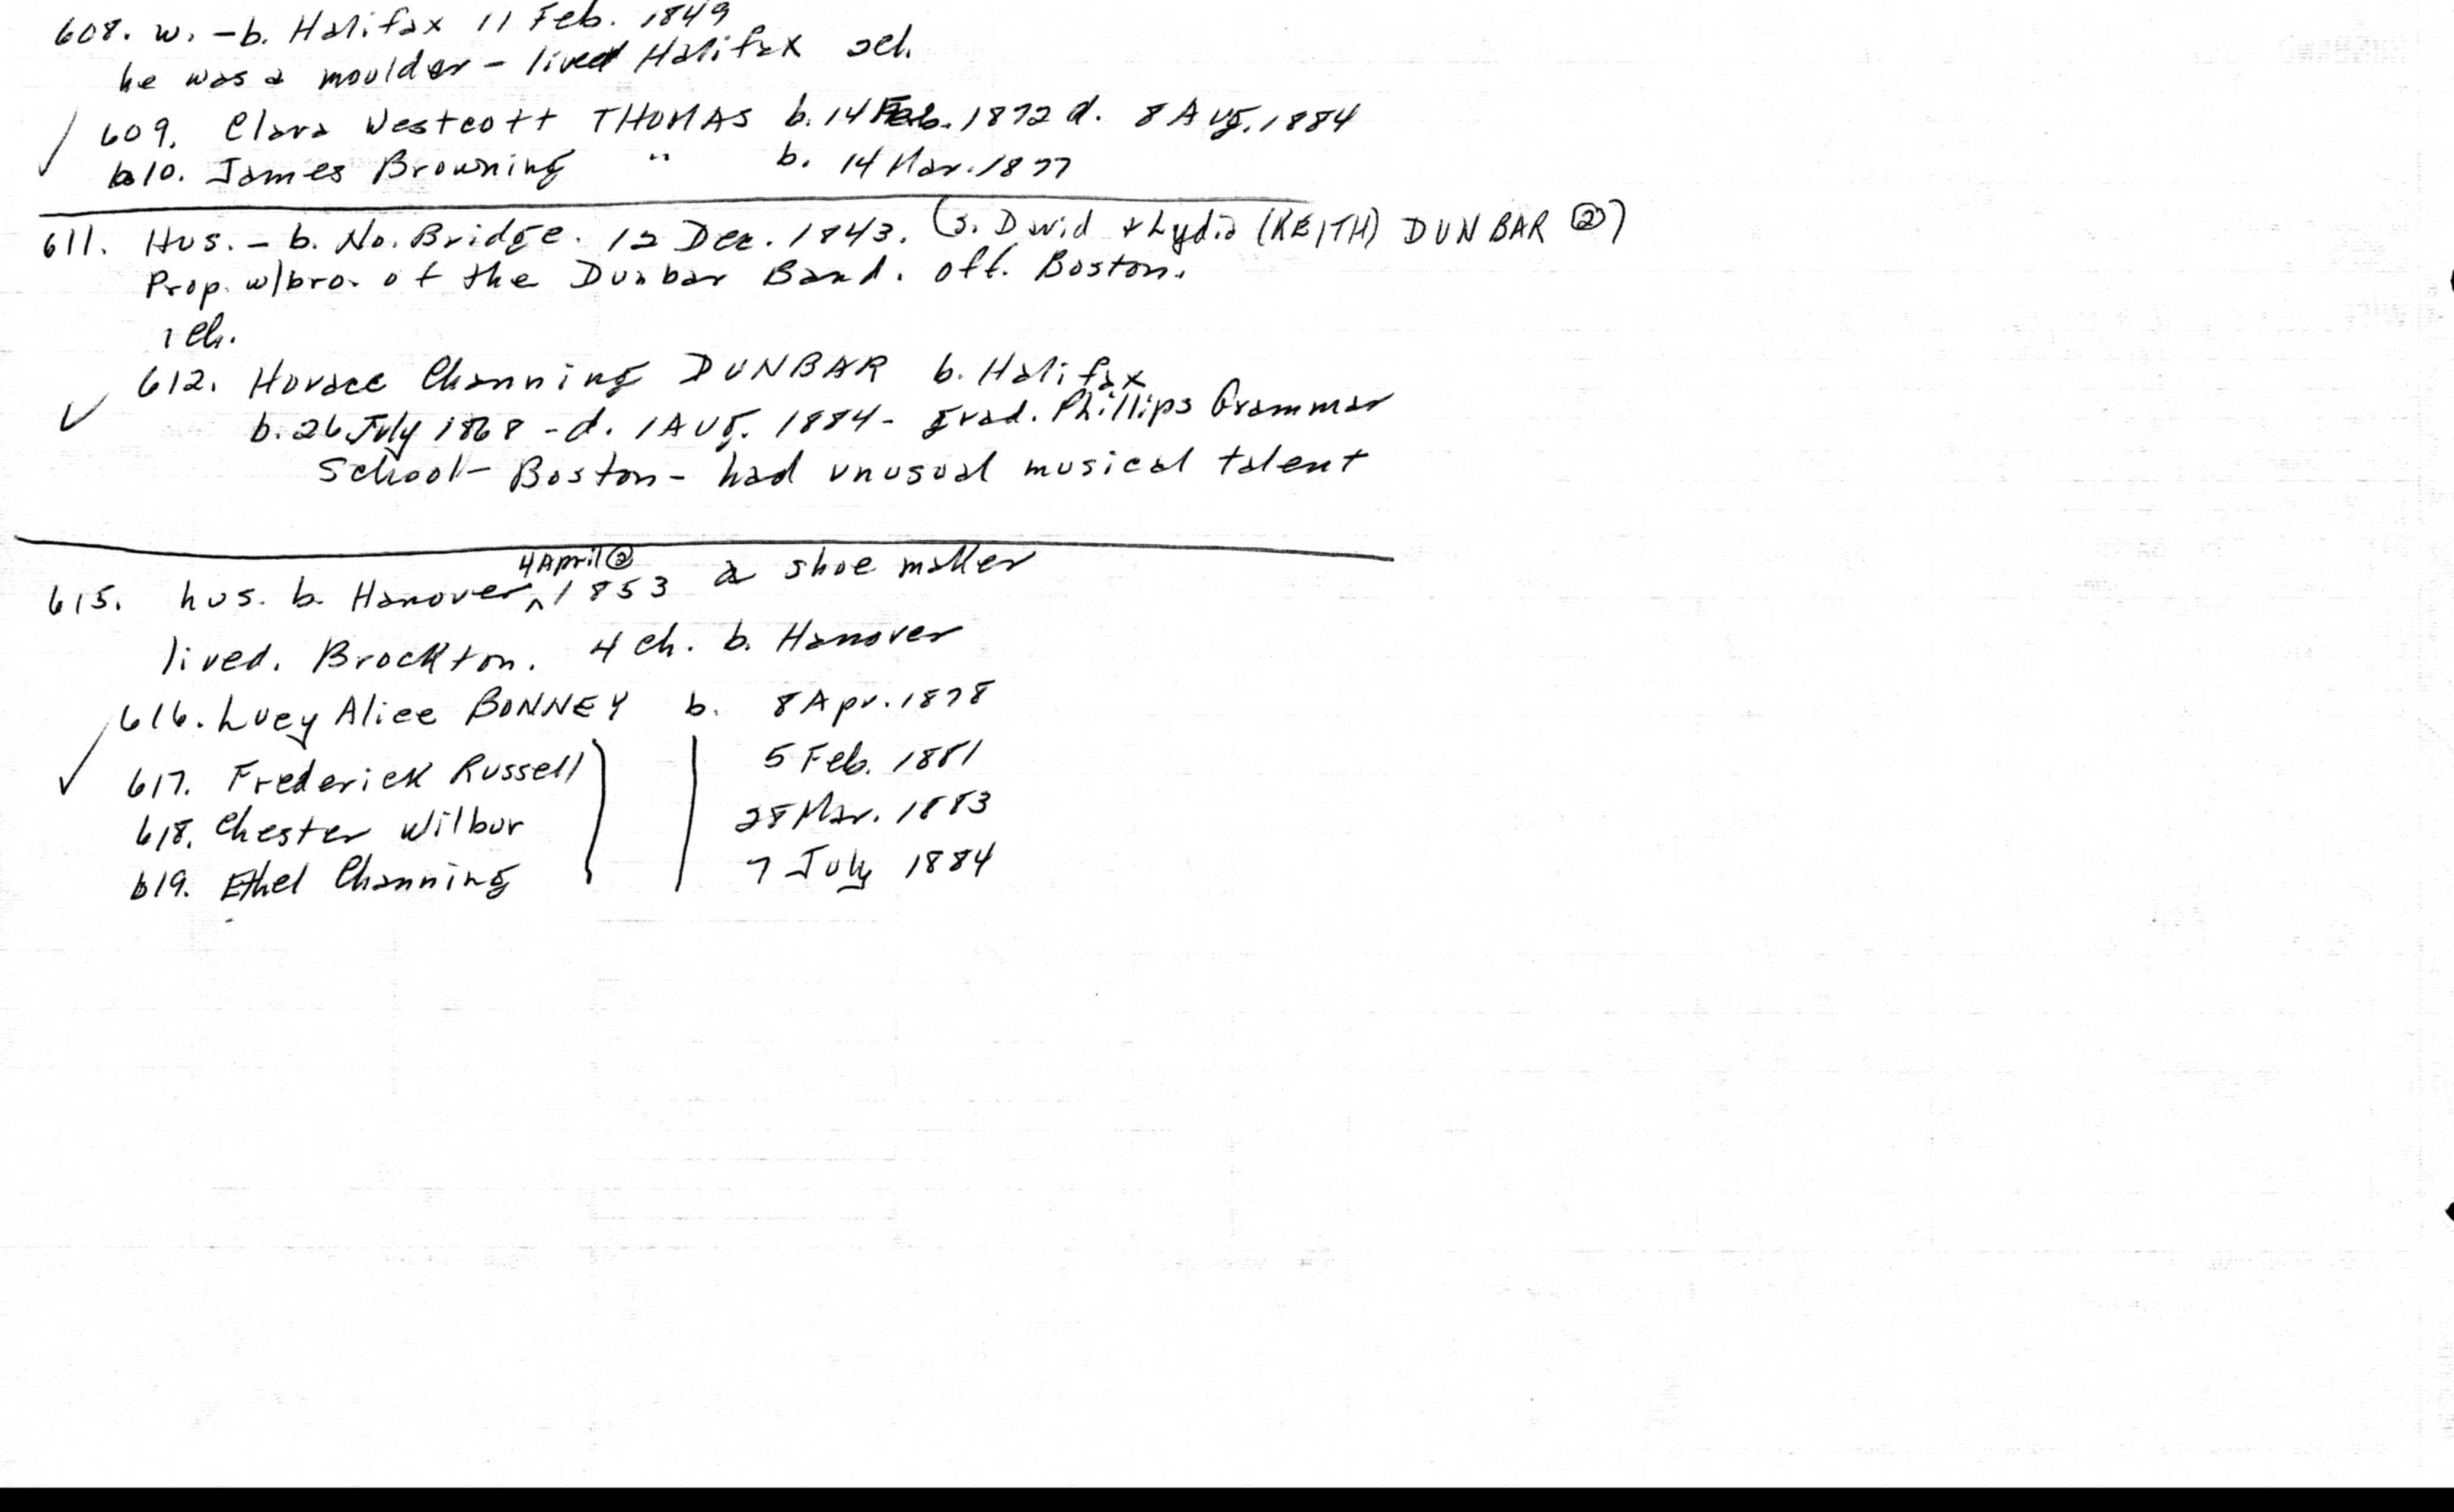 608. w. - b. Halifax 11 Feb. 1849
he was a moulder - lived Halifax 2ch.
✓ 609. Clara Westcott THOMAS b. 14 Feb. 1872 d. 8 Aug. 1884
610. James Browning " b. 14 Mar. 1877
611. Hus. - b. No. Bridge. 12 Dec. 1843. (s. David & Lydia (KEITH) DUNBAR ②)
Prop. w/bro. of the Dunbar Band. off. Boston.
1 ch.
612. Horace Channing DUNBAR b. Halifax
✓ b. 26 July 1868 - d. 1 Aug. 1884 - grad. Phillips Grammar
School - Boston - had unusual musical talent
4 April ②
615. hus. b. Hanover ^ 1853 a shoe maker
lived. Brockton. 4 ch. b. Hanover
616. Lucy Alice BONNEY b. 8 Apr. 1878
✓ 617. Frederick Russell 5 Feb. 1881
618. Chester Wilbur 28 Mar. 1883
619. Ethel Channing 7 July 1884